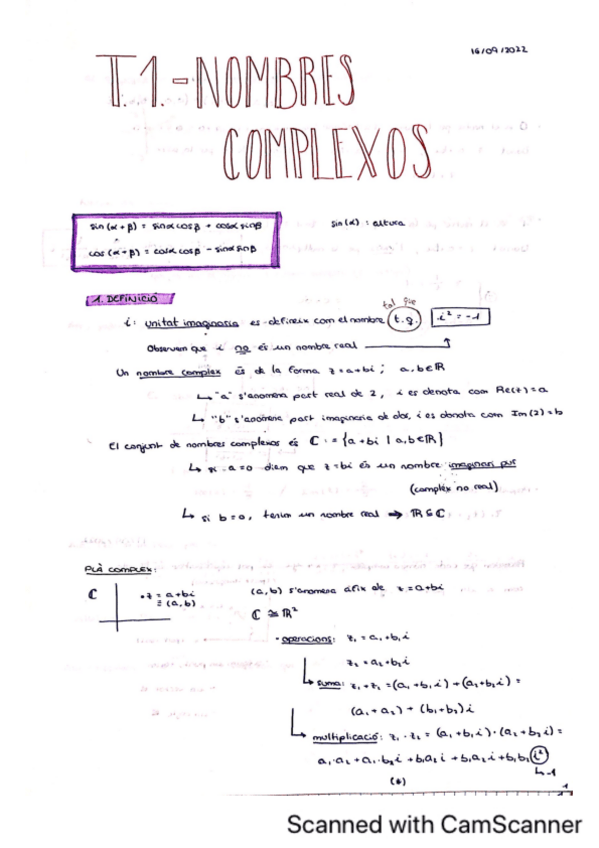 16/09/2022
T.1.-NOMBRES
COMPLEXOS
sin(α+β) = sinα cosβ + cosα sinβ
sin(α) : altura
cos(α+β) = cosα cosβ - sinα sinβ
1. DEFINICIÓ
tal que
i: unitat imaginaria es defineix com el nombre t.q. i² = -1
Observem que i no és un nombre real
Un nombre complex és de la forma z = a+bi ; a,b∈ℝ
↳ "a" s'anomena part real de z, i es denota com Re(z)=a
↳ "b" s'anomena part imaginaria de z, i es denota com Im(z)=b
El conjunt de nombres complexos és ℂ := {a+bi | a,b∈ℝ}
↳ si a=0 diem que z=bi és un nombre imaginari pur
(complex no real)
↳ si b=0, tenim un nombre real → ℝ⊆ℂ
PLÀ COMPLEX:
ℂ
• z = a+bi
≡ (a,b)
(a,b) s'anomena àfix de z=a+bi
ℂ ≅ ℝ²
· operacions: z₁ = a₁+b₁i
z₂ = a₂+b₂i
↳ suma: z₁+z₂ = (a₁+b₁i)+(a₂+b₂i) =
(a₁+a₂) + (b₁+b₂)i
↳ multiplicació: z₁·z₂ = (a₁+b₁i)·(a₂+b₂i) =
a₁·a₂+a₁·b₂i+b₁a₂i+b₁b₂i²
↳ -1
(*)
1
Scanned with CamScanner